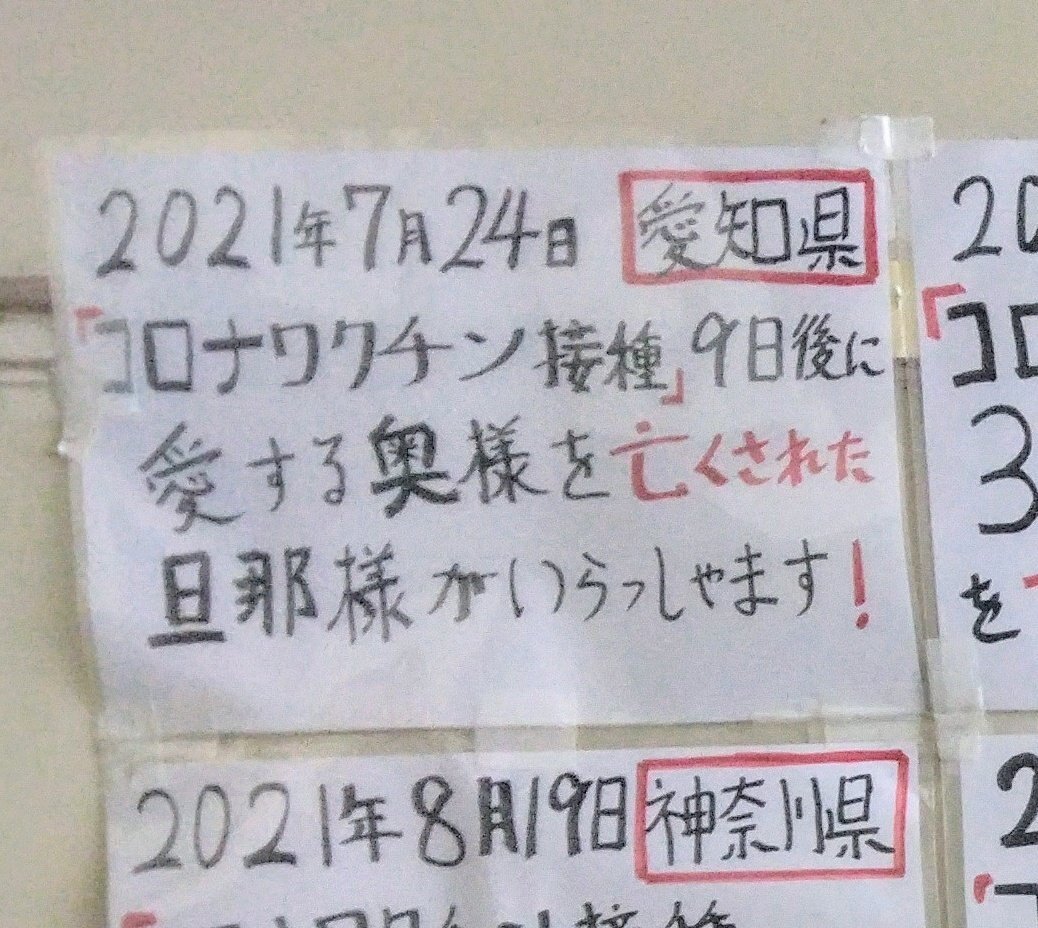 2021年7月24日 愛知県
「コロナワクチン接種」9日後に
愛する奥様を亡くされた
旦那様がいらっしゃます!
2021年8月19日 神奈川県
「コロナワクチン接種
20
「コロ
3
を
2
「